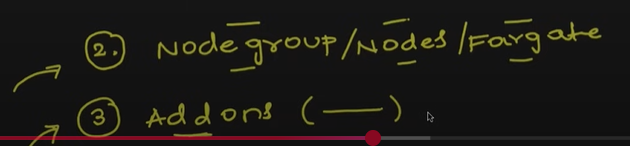 2. Nodegroup/Nodes/Fargate
3 Addons (—)